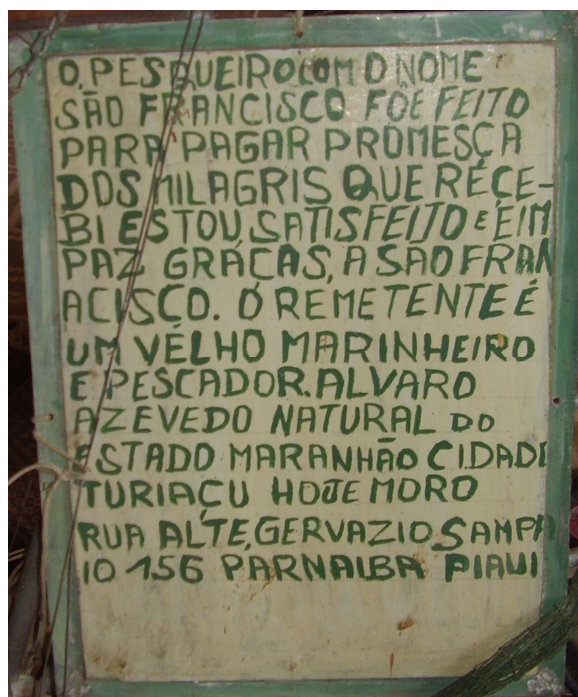 O, PESQUEIRO COM O NOME
SÃO FRANCISCO FOE FEITO
PARA PAGAR PROMESÇA
DOS MILAGRIS QUE RÉCE-
BI ESTOU, SATISFEITO E EIM
PAZ GRÁÇAS, A SÃO FRAN
ACISÇO. O REMETENTE É
UM VÉLHO MARINHEIRO
E PESCADOR. ALVARO
AZEVEDO NATURAL DO
ESTADO MARANHÃO CIDADE
TURIAÇU HOJE MORO
RUA ALTE, GERVAZIO SAMPA
IO 156 PARNAIBA PIAUI